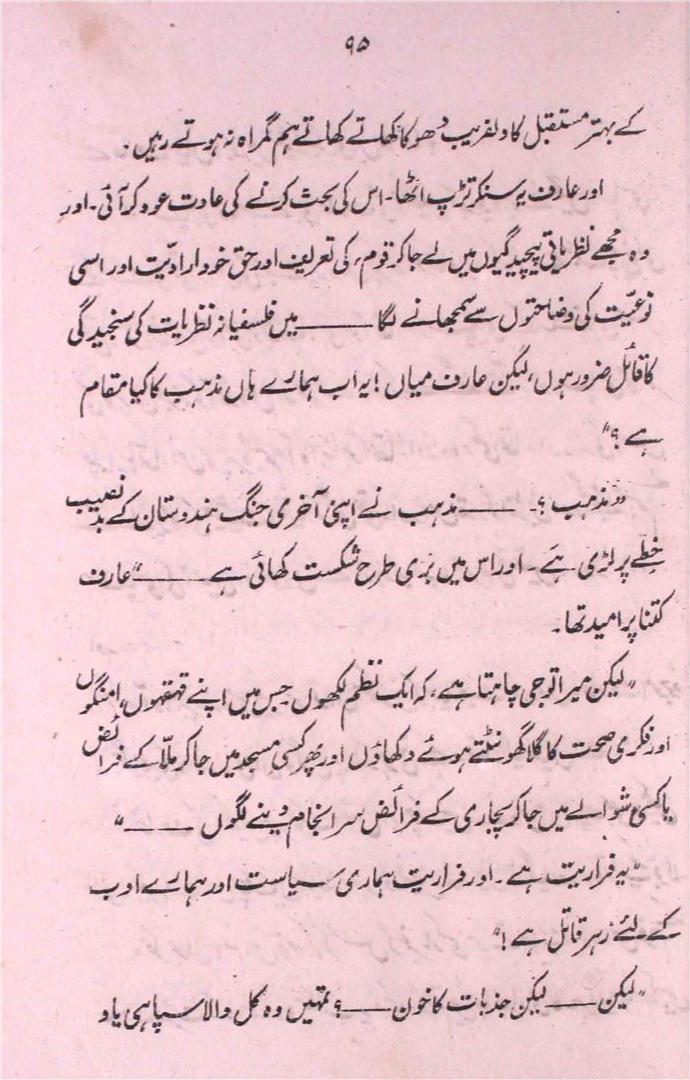 ۹۵
کے بہتر مستقبل کا دلفریب دھوکا کھاتے کھاتے ہم گمراہ نہ ہوتے رہیں۔
اور عارف یہ سنکر تڑپ اٹھا۔ اس کی بحث کرنے کی عادت عود کر آئی۔ اور
وہ مجھے نظریاتی پیچیدگیوں میں لے جا کر قوم، کی تعریف اور حق خود ارادیّت اور اسی
نوعیّت کی وضاحتوں سے سمجھانے لگا ——— میں فلسفیانہ نظریات کی سنجیدگی
کا قائل ضرور ہوں، لیکن عارف میاں! یہ اب ہمارے ہاں مذہب کا کیا مقام
ہے؟"
"مذہب؟۔ ——— مذہب نے اپنی آخری جنگ ہندوستان کے بد نصیب
خطے پر لڑی ہے۔ اور اس میں بری طرح شکست کھائی ہے ———" عارف
کتنا پر امید تھا۔
"لیکن میرا تو جی چاہتا ہے، کہ ایک نظم لکھوں جس میں اپنے قہقہوں، امنگوں
اور فکری صحت کا گلا گھونٹتے ہوئے دکھاؤں اور پھر کسی مسجد میں جا کر ملّا کے فرائض
یا کسی شوالے میں جا کر پجاری کے فرائض سر انجام دینے لگوں ———"
"یہ فراریت ہے۔ اور فراریت ہماری سیاست اور ہمارے ادب
کے لئے زہر قاتل ہے!"
"لیکن ——— لیکن جذبات کا خون ———؟ تمہیں وہ کل والا سپاہی یاد